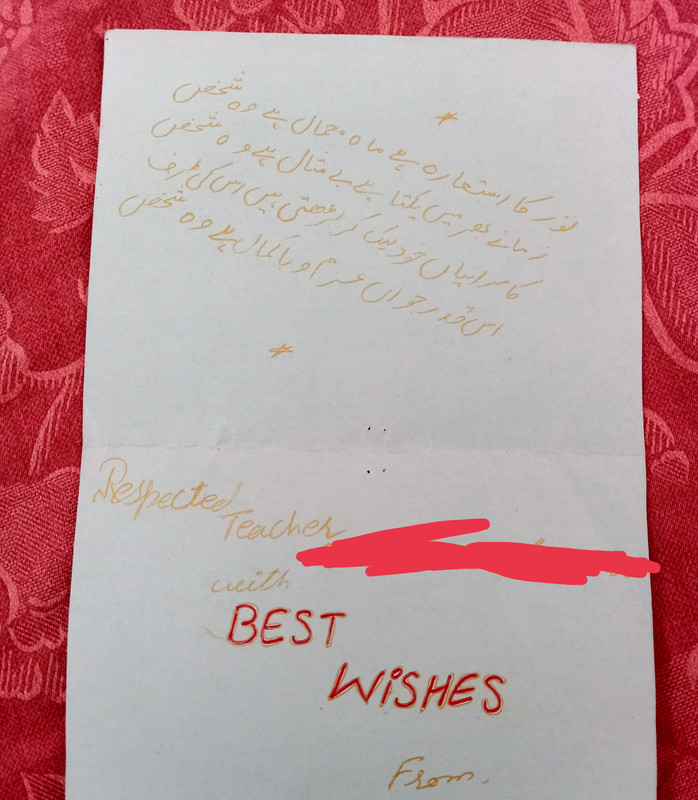 نور کا استعارہ ہے ماہ جمال ہے وہ شخص
زمانے بھر میں یکتا ہے بے مثال ہے وہ شخص
کامرانیاں خود لپک کر بڑھتی ہیں اس کی طرف
اس قدر جواں عزم و باکمال ہے وہ شخص
Respected
Teacher
with
BEST
WiSHES
From.